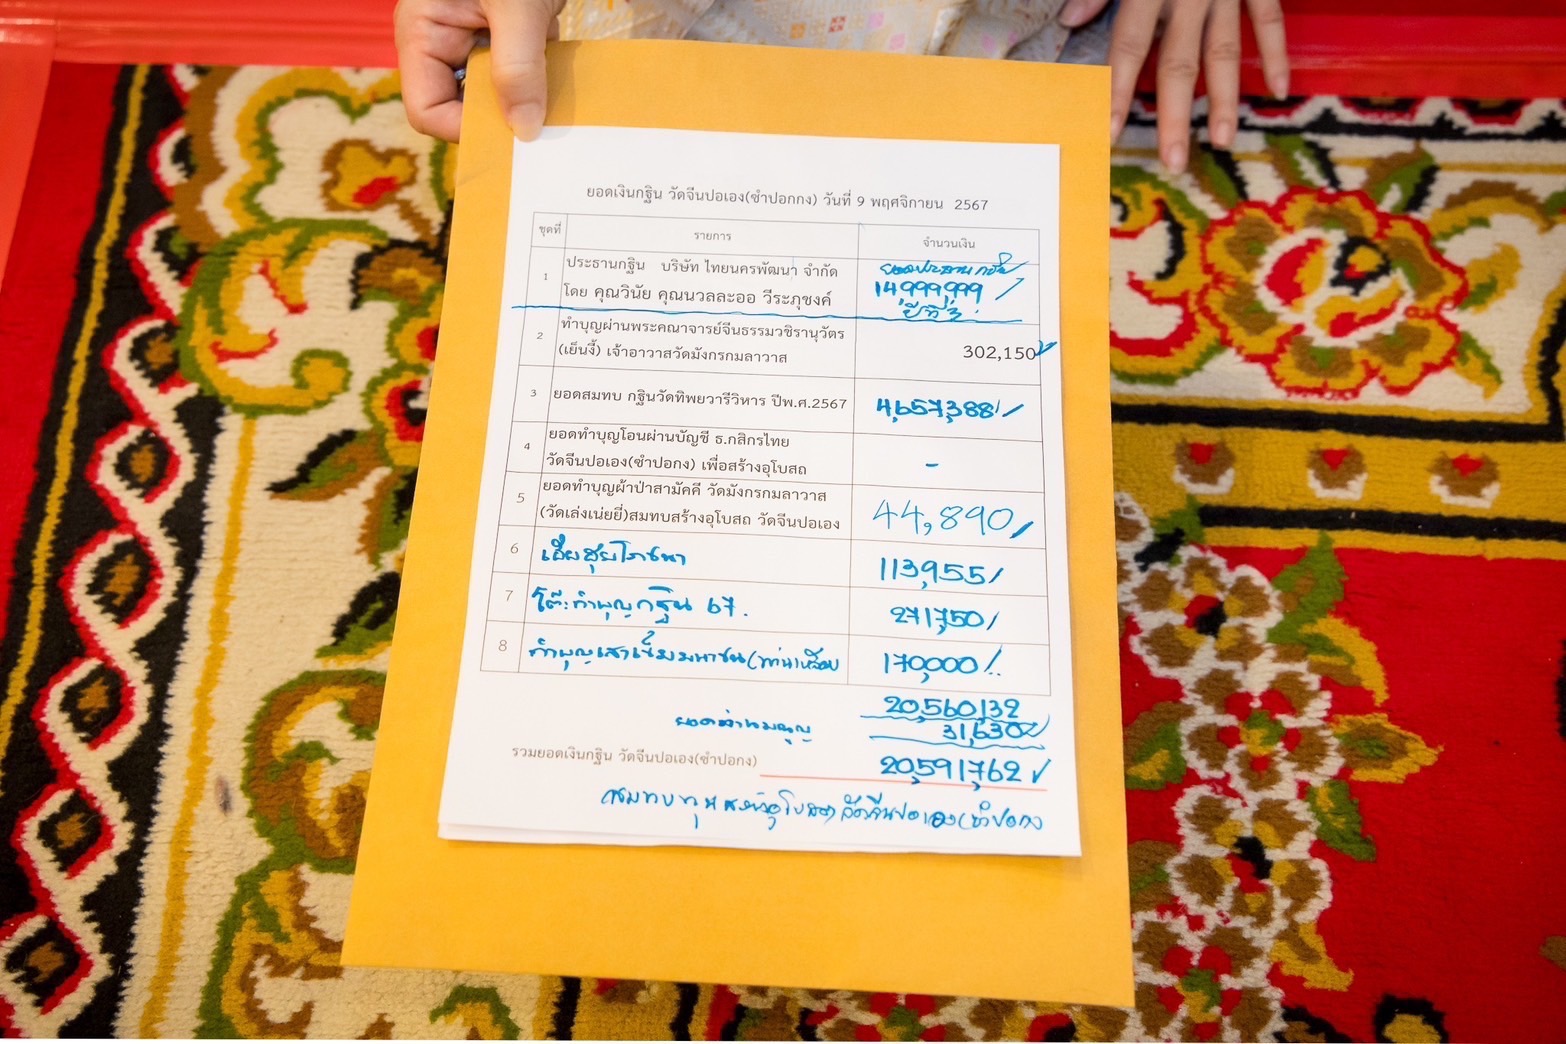 ยอดเงินกฐิน วัดจีนปอเอง(ซำปอกกง) วันที่ 9 พฤศจิกายน 2567
ชุดที่ รายการ จำนวนเงิน
1 ประธานกฐิน บริษัท ไทยนครพัฒนา จำกัด ยอดประธานกฐิน
โดย คุณวินัย คุณนวลละออ วีระภุชงค์ 14,999,999
ปีที่ 3
2 ทำบุญผ่านพระคณาจารย์จีนธรรมวชิรานุวัตร
(เย็นงี้) เจ้าอาวาสวัดมังกรกมลาวาส 302,150
3 ยอดสมทบ กฐินวัดทิพยวารีวิหาร ปีพ.ศ.2567 4,657,388
4 ยอดทำบุญโอนผ่านบัญชี ธ.กสิกรไทย
วัดจีนปอเอง(ซำปอกง) เพื่อสร้างอุโบสถ -
5 ยอดทำบุญผ้าป่าสามัคคี วัดมังกรกมลาวาส
(วัดเล่งเน่ยยี่)สมทบสร้างอุโบสถ วัดจีนปอเอง 44,890
6 113,955
7 โต๊ะทำบุญกฐิน 67. 271,750
8 ทำบุญเสาเข็ม 170,000
20,560,132
31,630
รวมยอดเงินกฐิน วัดจีนปอเอง(ซำปอกง) 20,591,762
สมทบทุนสร้างอุโบสถวัดจีนปอเอง(ซำปอกง